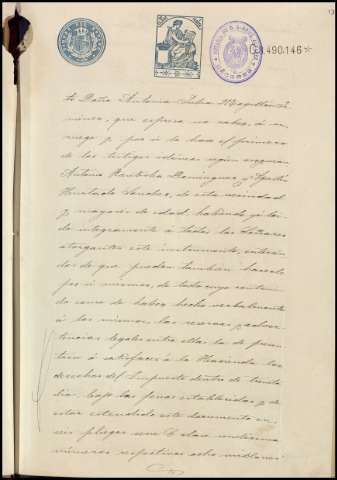 490.146
te Doña Antonia Julia
minez, que expresa no saber, á su
ruego y por sí lo hace el primero
de los testigos
Antonio Dominguez y
Hurtado Sanchez, de esta vecindad
y mayores de edad, habiendo yo lei-
do integramente á todos los Señores
otorgantes este instrumento, entera-
dos de que pueden tambien hacerlo
por si mismos, de todo cuyo conteni-
do como de haber hecho verbalmente
á los mismos las reservas y adver-
tencias legales entre ellas la de presen-
tar á satisfacer á la Hacienda los
derechos del Impuesto dentro de treinta
dias, bajo las penas establecidas y de
estar estendido este documento en
seis pliegos
números respectivos ocho millones